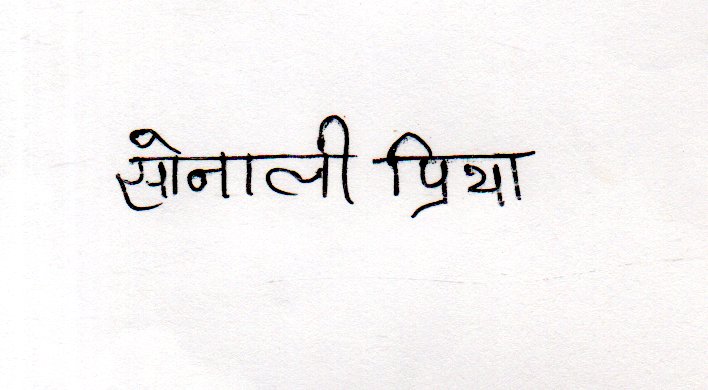 सोनाली प्रिया